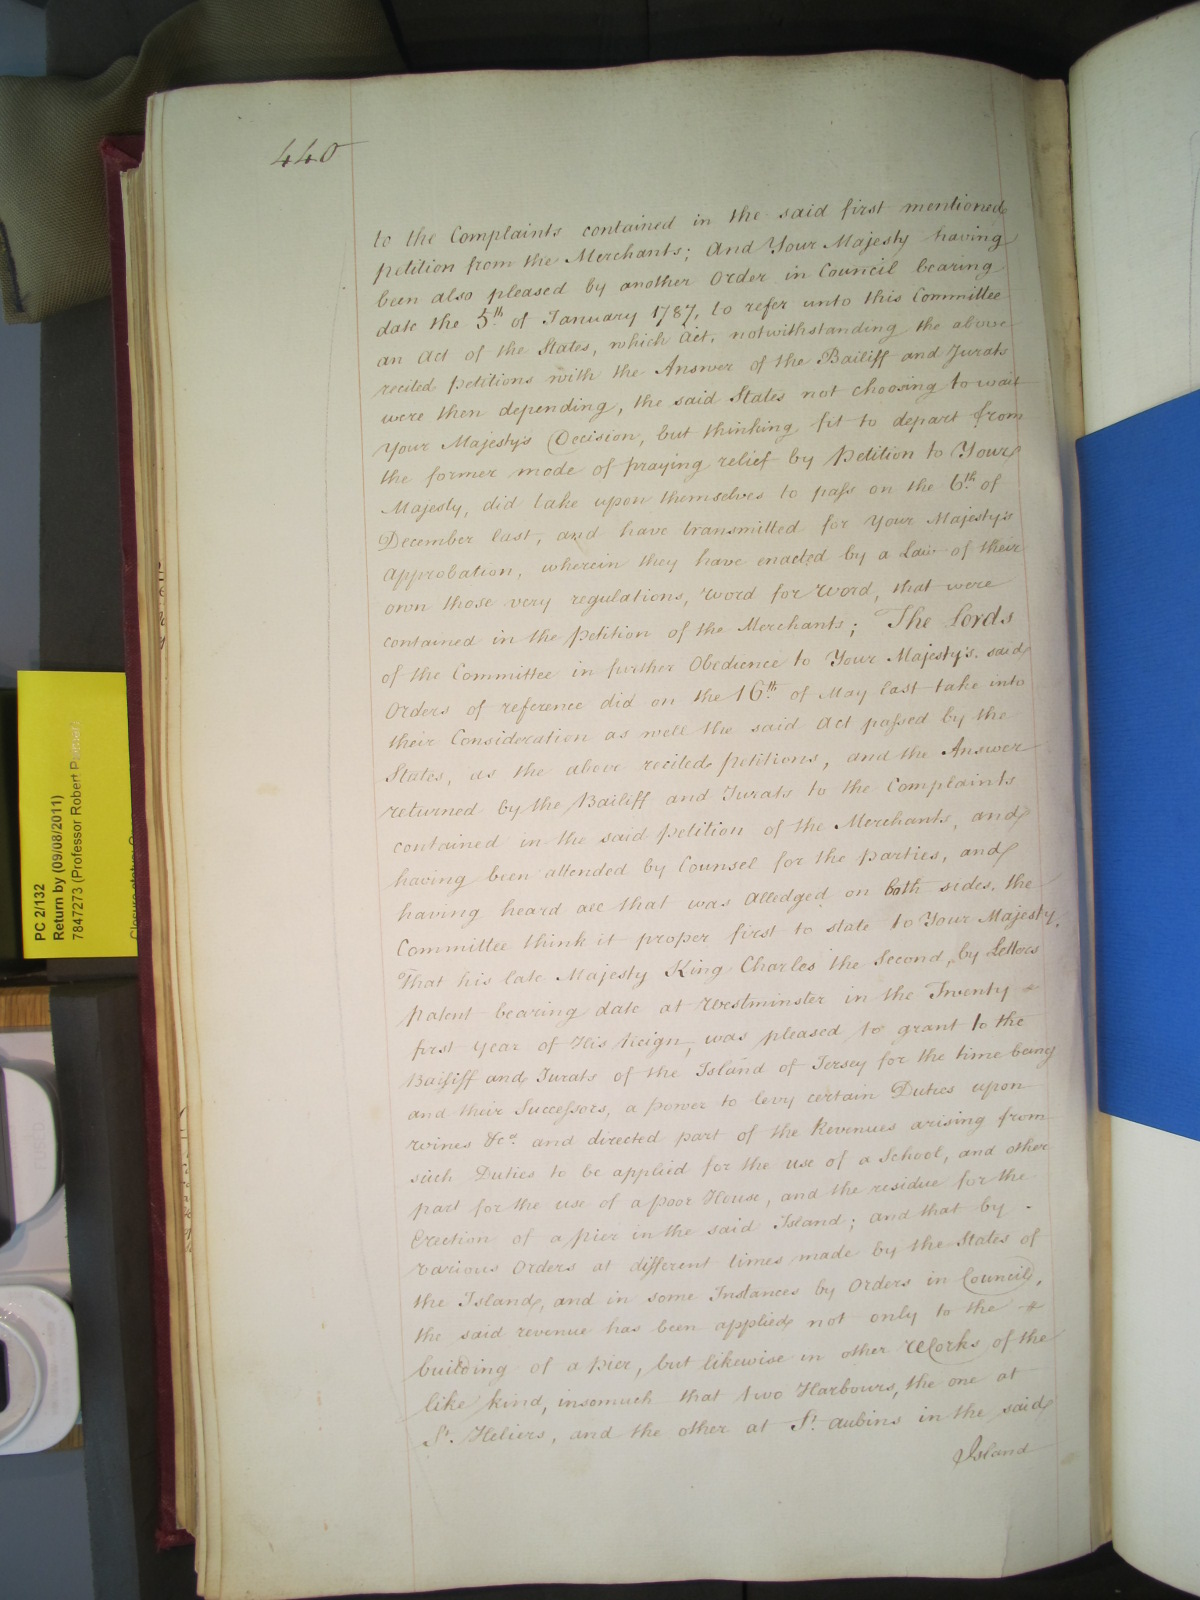 440
to the Complaints contained in the said first mentioned
petition from the Merchants; And Your Majesty having
been also pleased by another Order in Council bearing
date the 5th of January 1787, to refer unto this Committee
an Act of the States, which Act, notwithstanding the above
recited petitions with the Answer of the Bailiff and Jurats
were then depending, the said States not choosing to wait
Your Majesty's Decision, but thinking fit to depart from
the former mode of praying relief by Petition to Your
Majesty, did take upon themselves to pass on the 6th of
December last, and have transmitted for Your Majesty's
approbation, wherein they have enacted by a Law of their
own those very regulations, word for word, that were
contained in the petition of the Merchants; The Lords
of the Committee in further Obedience to Your Majesty's said
Orders of reference did on the 16th of May last take into
their Consideration as well the said Act passed by the
States, as the above recited petitions, and the Answer
returned by the Bailiff and Jurats to the Complaints
contained in the said petition of the Merchants, and
having been attended by Counsel for the parties, and
having heard all that was alledged on both sides, the
Committee think it proper first to state to Your Majesty,
That his late Majesty King Charles the Second, by Letters
patent bearing date at Westminster in the Twenty
first Year of His Reign, was pleased to grant to the
Bailiff and Jurats of the Island of Jersey for the time being
and their Successors, a power to levy certain Duties upon
wines &ca. and directed part of the Revenues arising from
such Duties to be applied for the use of a School, and other
part for the use of a poor House, and the residue for the
Erection of a pier in the said Island; and that by
various Orders at different times made by the States of
the Island, and in some Instances by Orders in Council,
the said revenue has been applied not only to the
building of a pier, but likewise in other Works of the
like kind, insomuch that two Harbours, the one at
St. Heliers, and the other at St. Aubins in the said
Island
PC 2/132
Return by (09/08/2011)
7847273 (Professor Robert